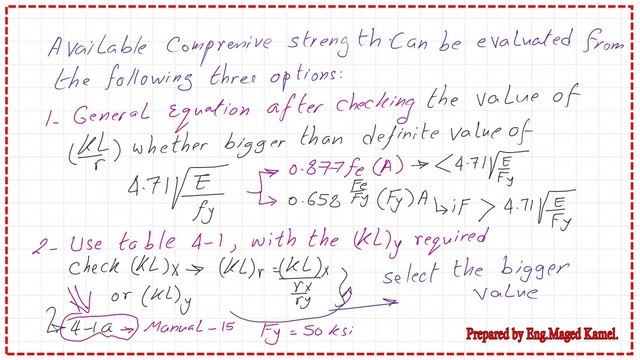 Available Compressive strength Can be evaluated from
the following three options:
1- General Equation after checking the value of
(KL/r) whether bigger than definite value of
4.71√(E/fy) → 0.877fe (A) → < 4.71√(E/Fy)
→ 0.658^(Fe/Fy) (Fy) A ↳ iF > 4.71√(E/Fy)
2- Use table 4-1, with the (KL)y required
check (KL)x → (KL)r = (KL)x / (rx/ry)
or (KL)y
select the bigger
value
↳ 4-1a → Manual-15 Fy = 50 ksi
Prepared by Eng.Maged Kamel.